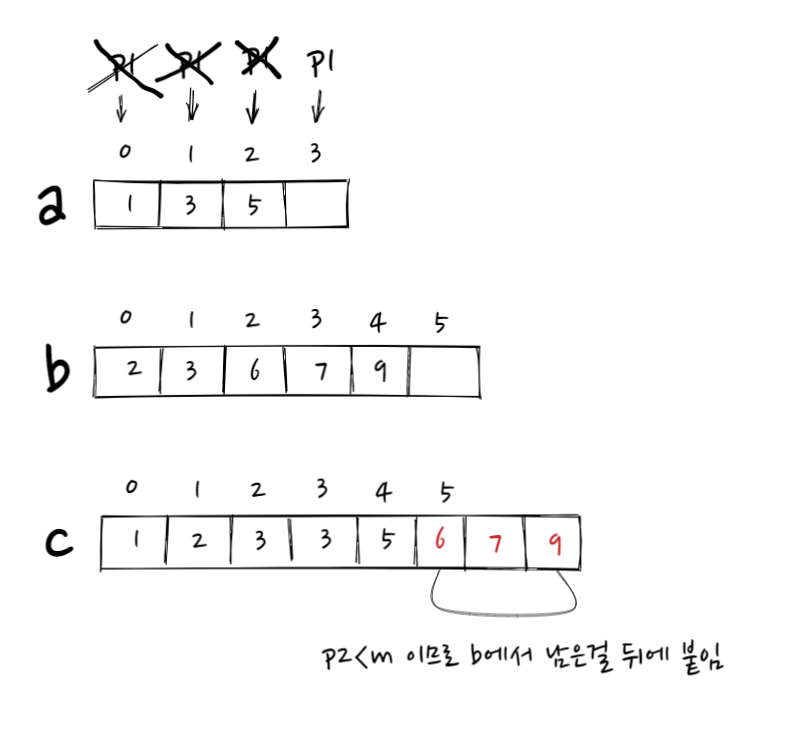 P1 P1 P1 P1
0 1 2 3
a 1 3 5
0 1 2 3 4 5
b 2 3 6 7 9
0 1 2 3 4 5
c 1 2 3 3 5 6 7 9
P2<m 이므로 b에서 남은걸 뒤에 붙임